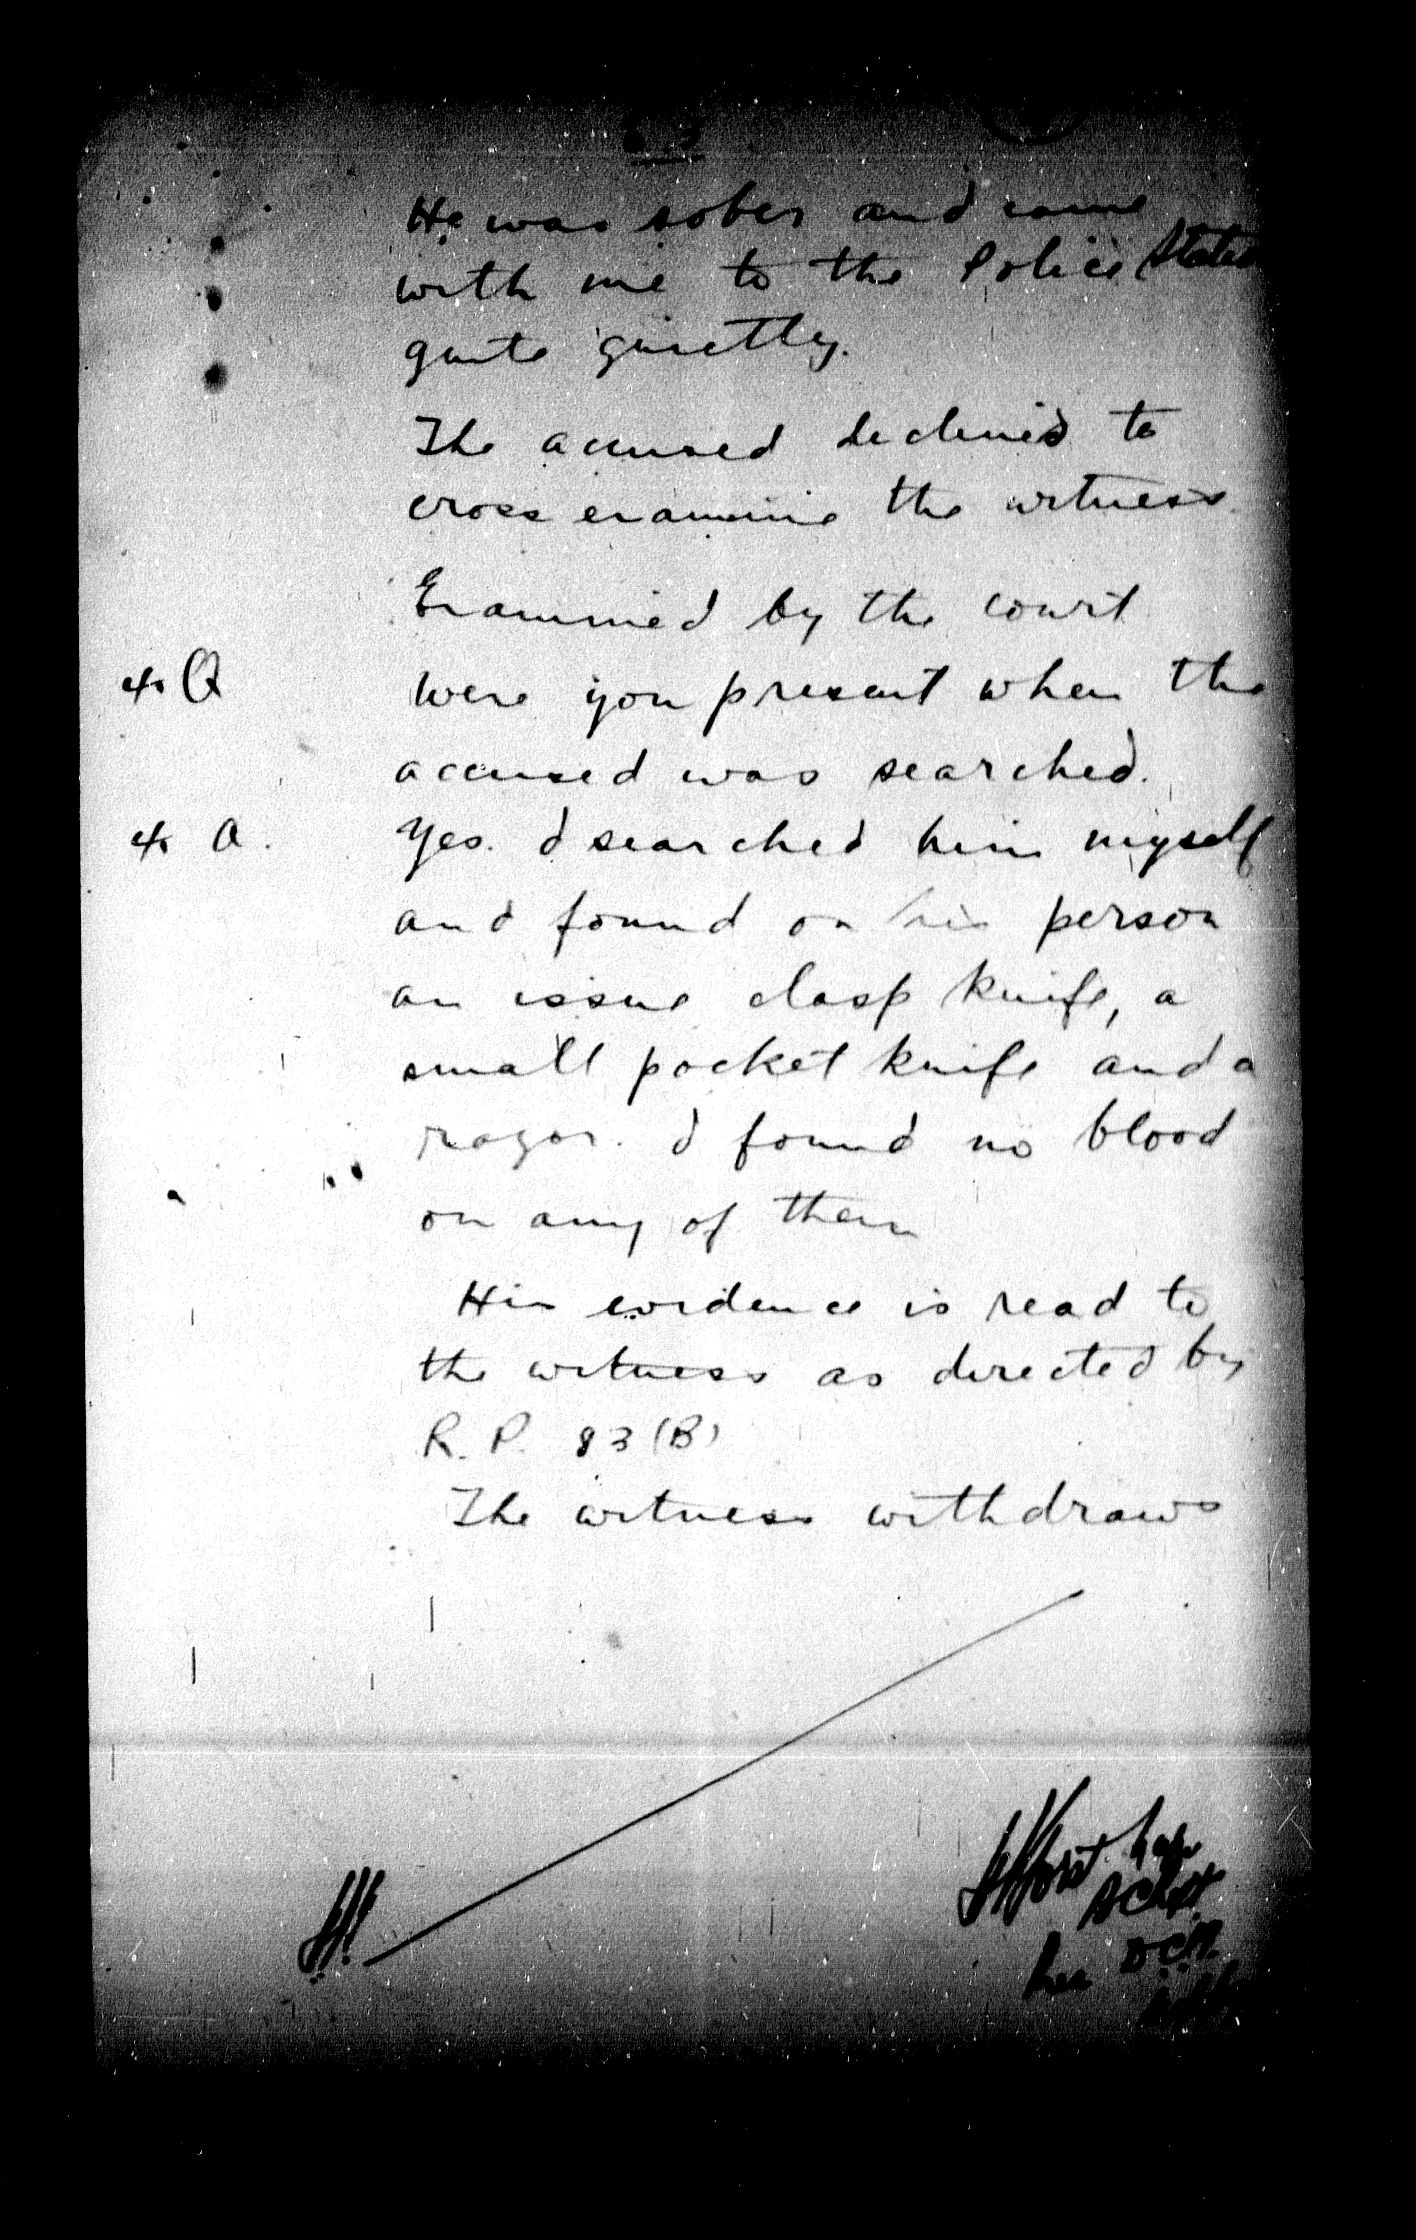 He was sober and came
with me to the Police Station
quite quietly.
The accused declined to
cross examine the witness.
Examined by the court
4. Q Were you present when the
accused was searched.
4. A. Yes. I searched him myself
and found on his person
an issue clasp knife, a
small pocket knife and a
razor. I found no blood
on any of them
His evidence is read to
the witness as directed by
R. P. 83 (B)
The witness withdraws